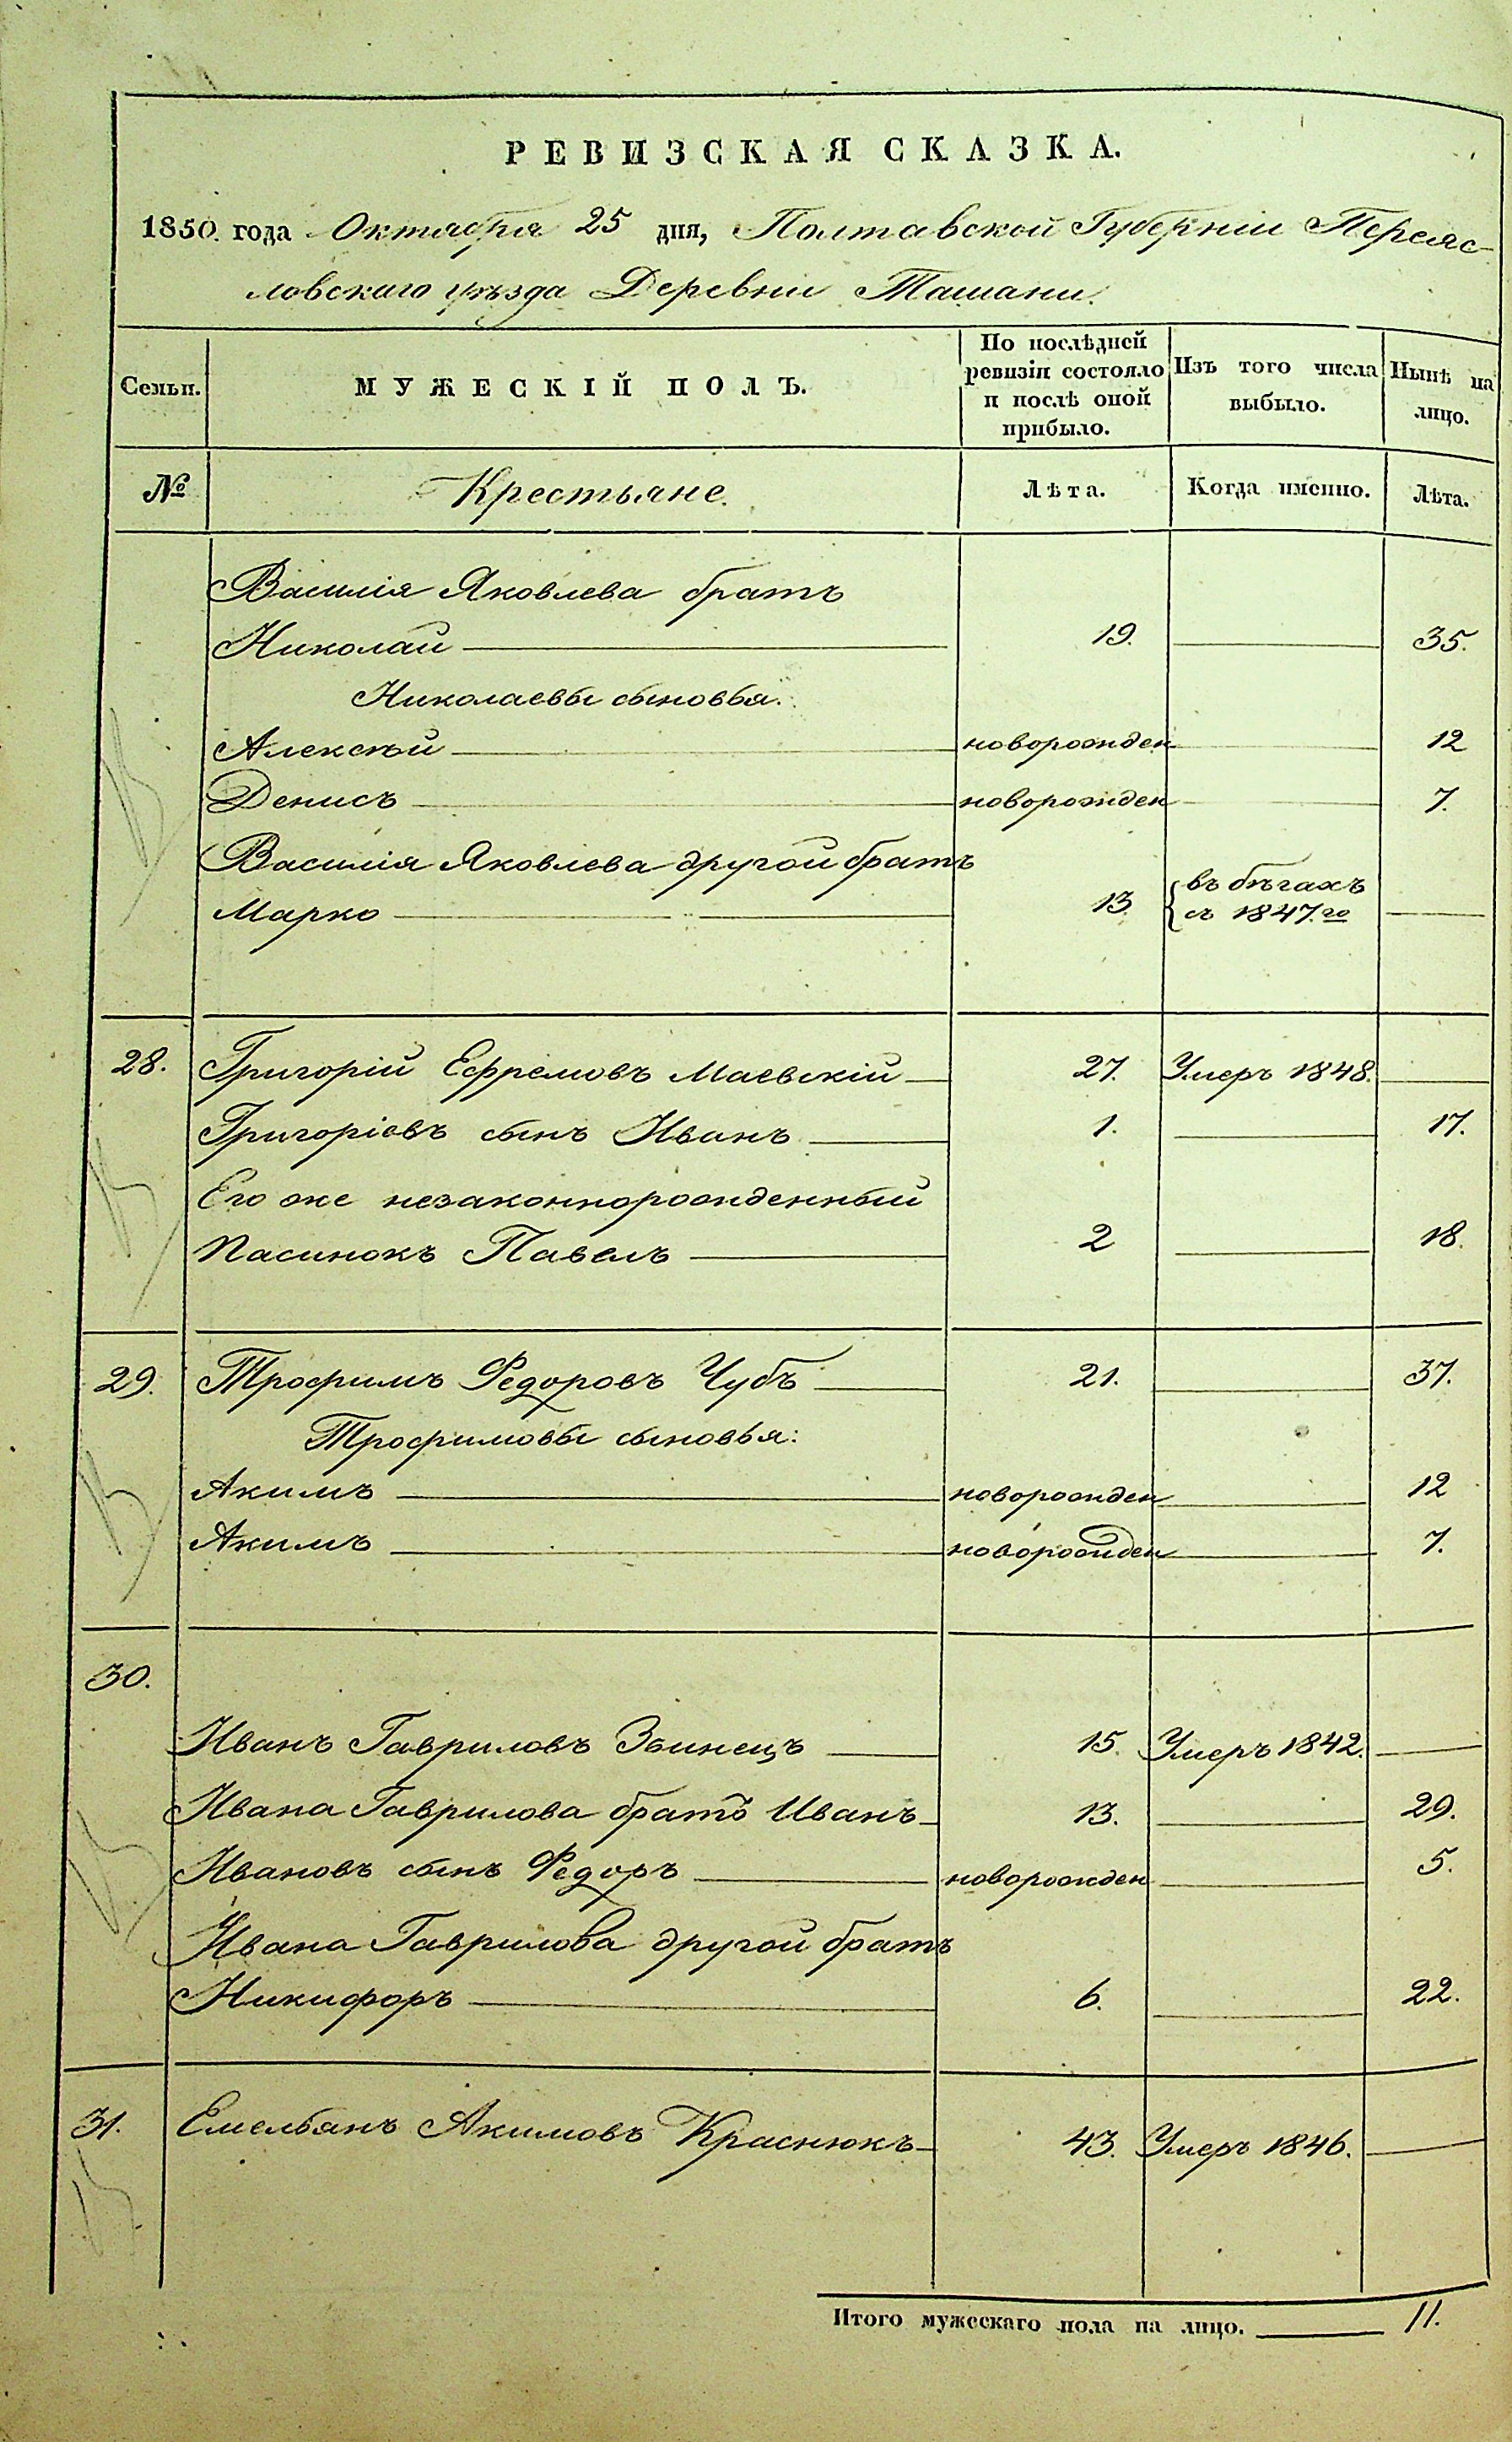 РЕВИЗСКАЯ СКАЗКА.
1850. года Октября 25 дня, Полтавской Губерніи Переяс-
ловскаго уѣзда Деревни Ташани.
Семьи. МУЖЕСКІЙ ПОЛЪ. По послѣдней ревизіи состояло и послѣ оной прибыло. Изъ того числа выбыло. Нынѣ на лицо.
№ Крестьяне. Лѣта. Когда именно. Лѣта.
Василія Яковлева братъ
Николай 19. 35.
Николаевы сыновья:
Алексѣй новорожден 12
Денисъ новорожден 7.
Василія Яковлева другой братъ
въ бѣгахъ
Марко 13. съ 1847.го
28. Григорій Ефремовъ Маевскій 27. Умеръ 1848.
Григоріевъ сынъ Иванъ 1. 17.
Его же незаконнорожденный
Пасинокъ Павелъ 2 18.
29. Трофимъ Федоровъ Чубъ 21. 37.
Трофимовы сыновья:
Акимъ новорожден 12
Акимъ новорожден 7.
30.
Иванъ Гавриловъ Зъинецъ 15. Умеръ 1842.
Ивана Гаврилова братъ Иванъ 13. 29.
Ивановъ сынъ Федоръ новорожден 5.
Ивана Гаврилова другой братъ
Никифоръ 6. 22.
31. Емельянъ Акимовъ Краснюкъ 43. Умеръ 1846.
Итого мужескаго пола на лицо. 11.